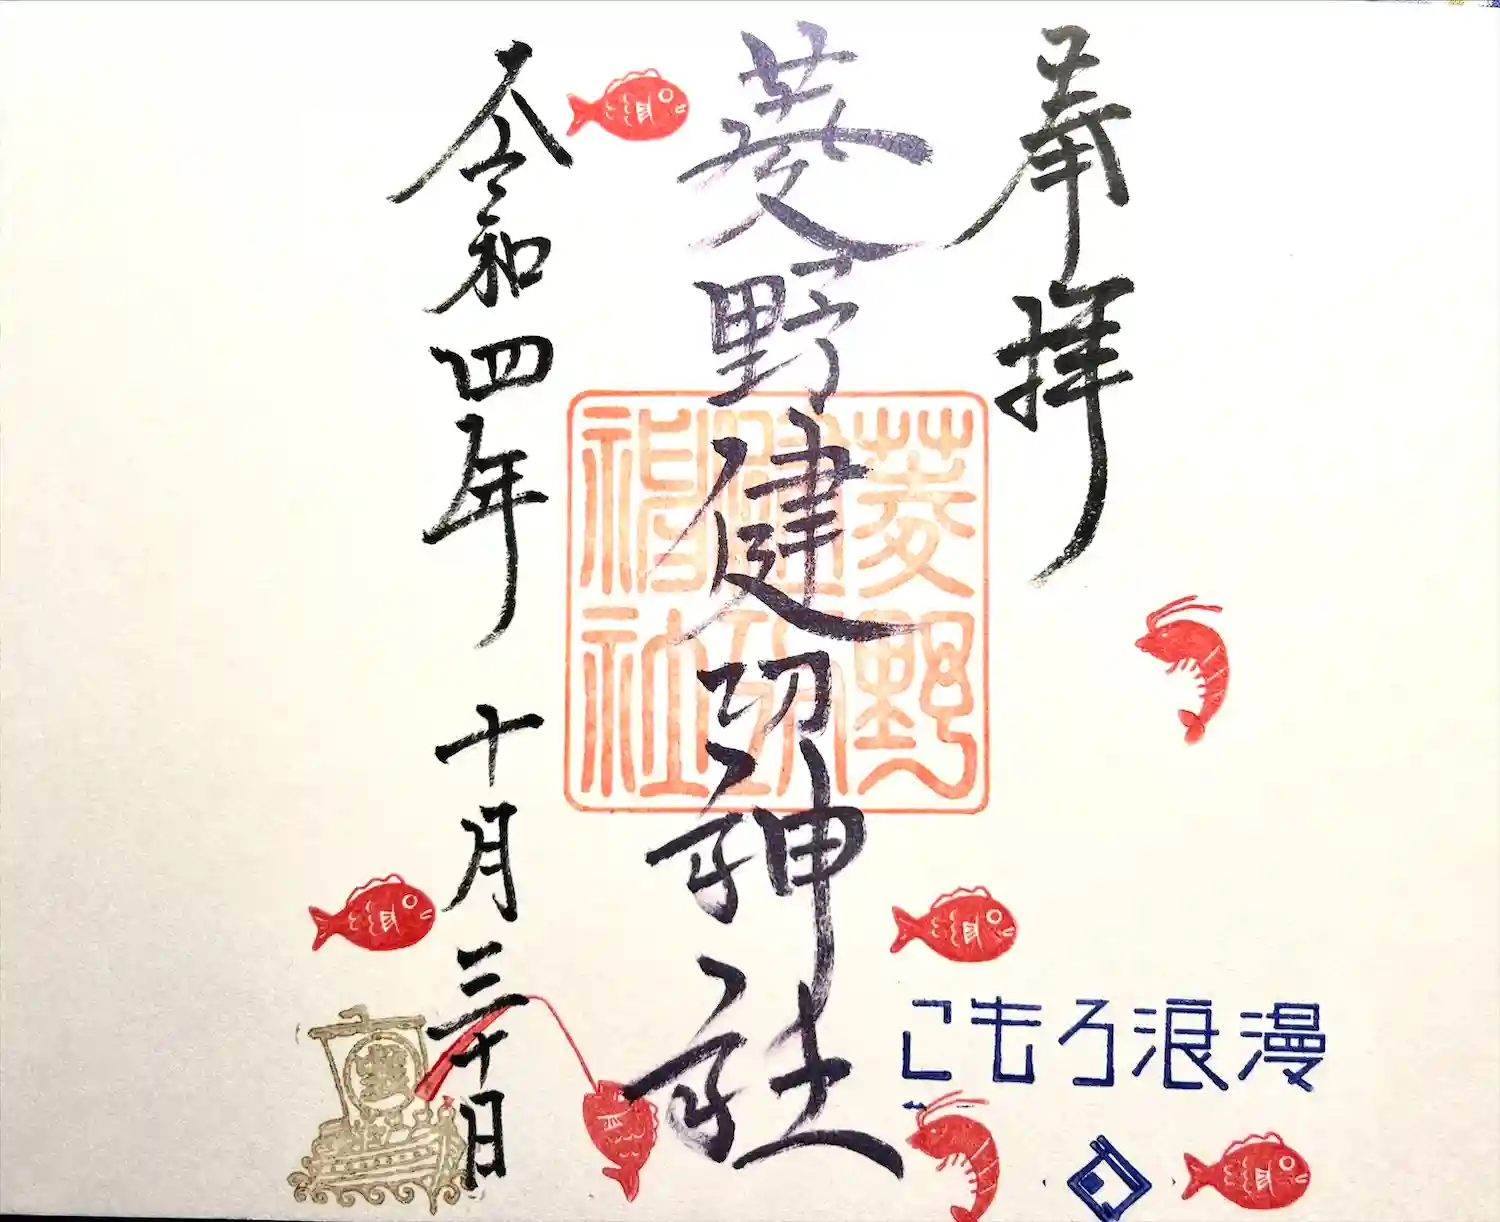 奉拝
菱野健功神社
菱野
健功
神社
令和四年 十月三十日
こもろ浪漫